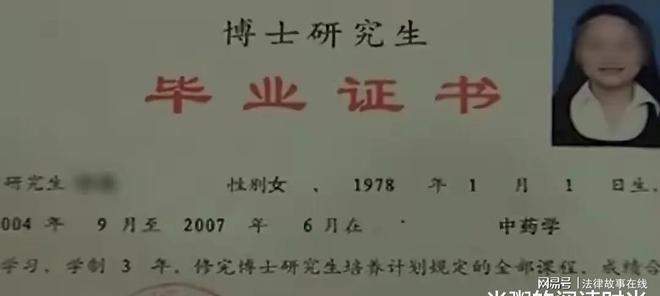 博士研究生
毕业证书
研究生 性别女 、 1978 年 1 月 1 日生,
004 年 9 月至 2007 年 6 月在 中药学
学习,学制 3 年,修完博士研究生培养计划规定的全部课程,成绩合
网易号 | 法律故事在线